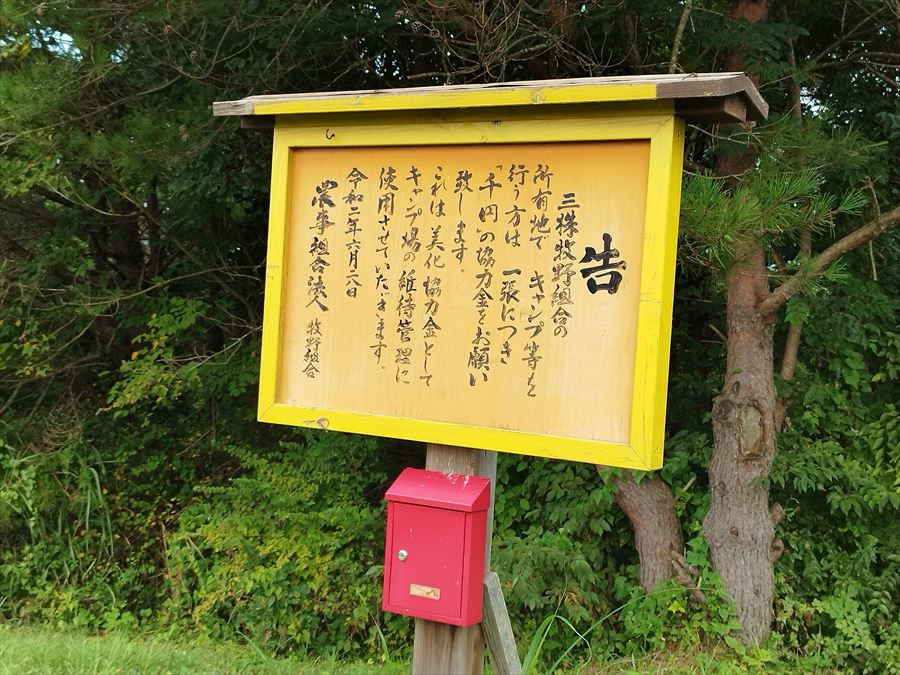 告
三株牧野組合の
所有地で キャンプ等を
行う方は 一張につき
「千円」の協力金をお願い
致します。
これは 美化 協力金として
キャンプ場の 維持管理に
使用させていただきます。
令和二年六月二八日
農事組合法人 牧野組合